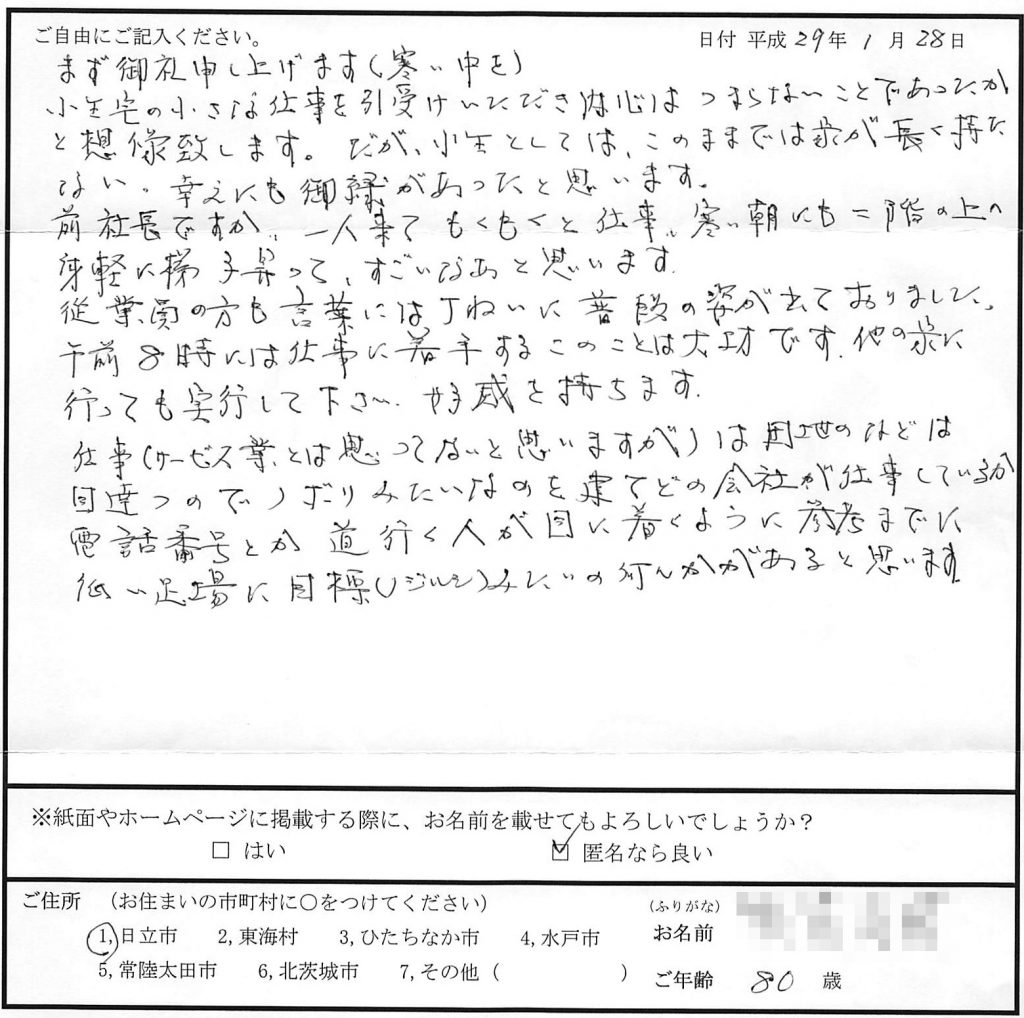 ご自由にご記入ください。 日付 平成 29年 1月 28日
まず御礼申し上げます(寒い中を)
小生宅の小さな仕事を引受けいただき内心はつまらないことであったか
と想像致します。だが、小生としては、このままでは家が長く持た
ない。幸えにも御縁があったと思います。
前社長ですか、一人来てもくもくと仕事、寒い朝にも二階の上へ
身軽に梯子昇って、すごいなあと思います。
従業員の方も言葉には丁ねいに普段の姿が出ておりました。
午前8時には仕事に着手するこのことは大切です。他の家に
行っても実行して下さい。好感を持ちます。
仕事(サービス業とは思ってないと思いますが)は団地のほどは
目達つのでノボリみたいなのを建てどの会社が仕事しているか
電話番号とか道行く人が目に着くように参考までに
低い足場に目標(ノジルシ)みたいの何んかがあると思います
※紙面やホームページに掲載する際に、お名前を載せてもよろしいでしょうか?
□ はい ☑ 匿名なら良い
ご住所 (お住まいの市町村に○をつけてください) (ふりがな)
1,日立市 2,東海村 3,ひたちなか市 4,水戸市 お名前
5,常陸太田市 6,北茨城市 7,その他 ( ) ご年齢 80 歳